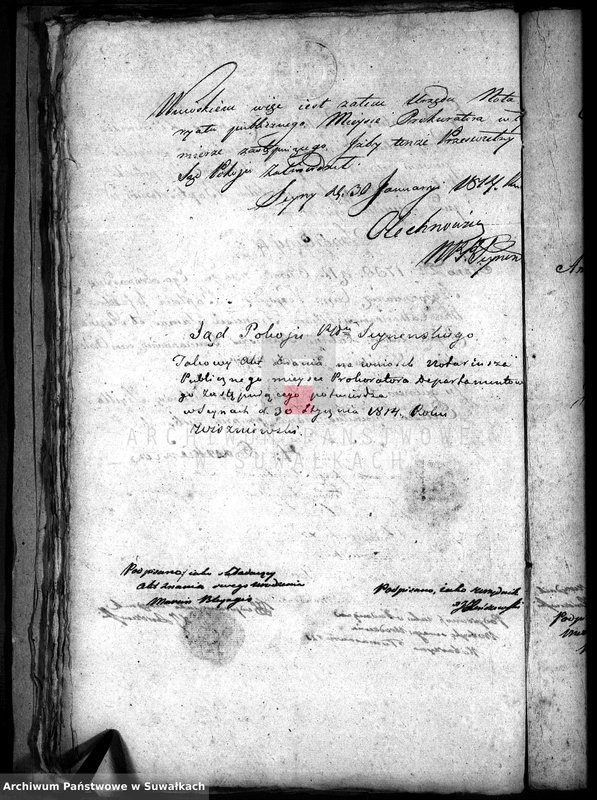 Wnioskiem więc iest zatem Urzędu Nota
ryatu publicznego Mieysce Prokuratora w t
mierze zastępuiącego. Jżby tenże Prześwietny
Sąd Pokoju Zatwierdził.
Seyny d. 30 Januaryi 1814. Ru
Olechnowicz
Sąd Pokoju Pttu Seynenskiego
Takowy Akt Znania na wniosek Notariusza
Publicznego mieysce Prokoratora Departamentow
go zastępuiącego potwierdza
w Seynach d. 30 Stycznia 1814. Roku
ARCHIWUM PAŃSTWOWE
W SUWAŁKACH
Podpisano, iako składaiący
akt znania swego urodzenia
Marcin
Podpisano, iako urzędnik
Archiwum Państwowe w Suwałkach